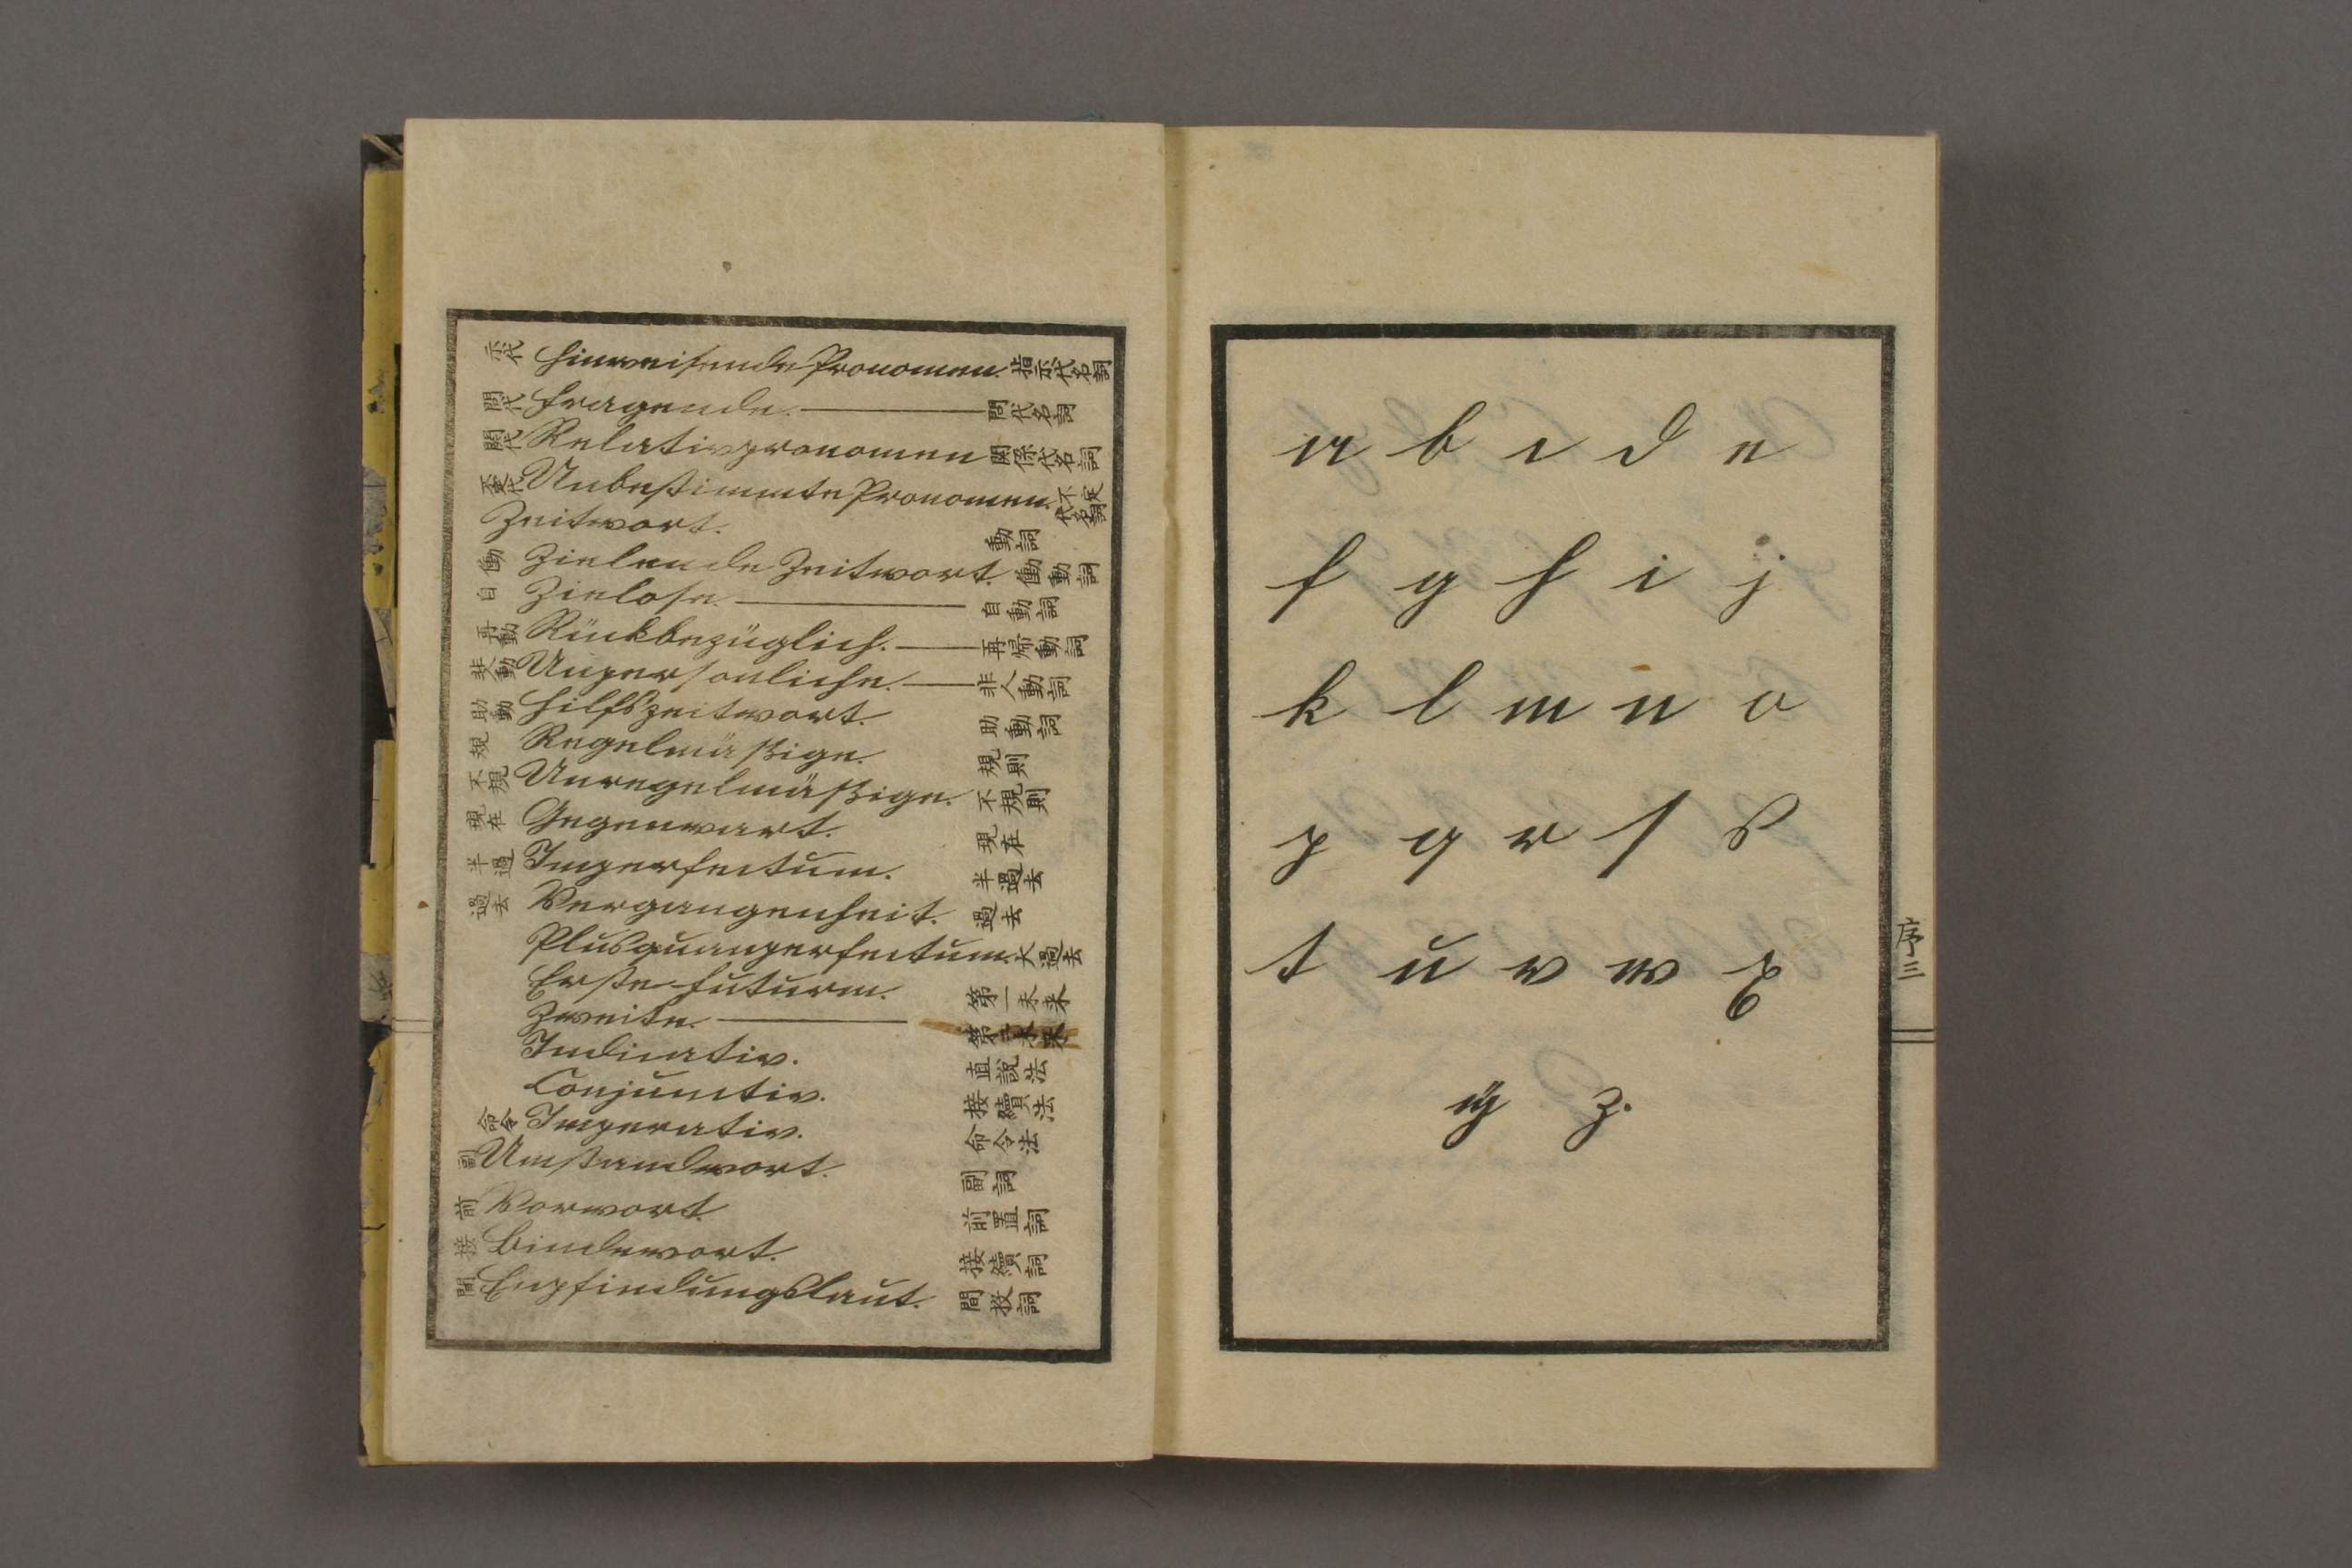 示代 Hinweisende Pronomen. 指示代名詞
問代 Fragende. ——— 問代名詞
関代 Relativpronomen 関係代名詞
Unbestimmte Pronomen. 不定代名詞
Zeitwort. 動詞
働 Zielende Zeitwort. 働動詞
自 Ziellose. ——— 自動詞
再動 Rückbezüglich. —— 再帰動詞
非人動 Unpersonliche. —— 非人動詞
助動 Hilfszeitwort. 助動詞
規 Regelmäßige. 規則
不規 Unregelmäßige. 不規則
現在 Gegenwart. 現在
半過 Imperfectum. 半過去
過去 Vergangenheit. 過去
Plusquanperfectum. 大過去
Erste Futurm. 第一未来
Zweite. ——— 第二未来
Indicativ. 直説法
Conjunctiv. 接續法
命令 Imperativ. 命令法
副 Umstandwort. 副詞
前 Vorwort. 前置詞
接 Bindewort. 接續詞
間 Empfindungslaut. 間投詞
a b c d e
f g h i j
k l m n o
p q r ſ s
t u v w x
ÿ z.
序三